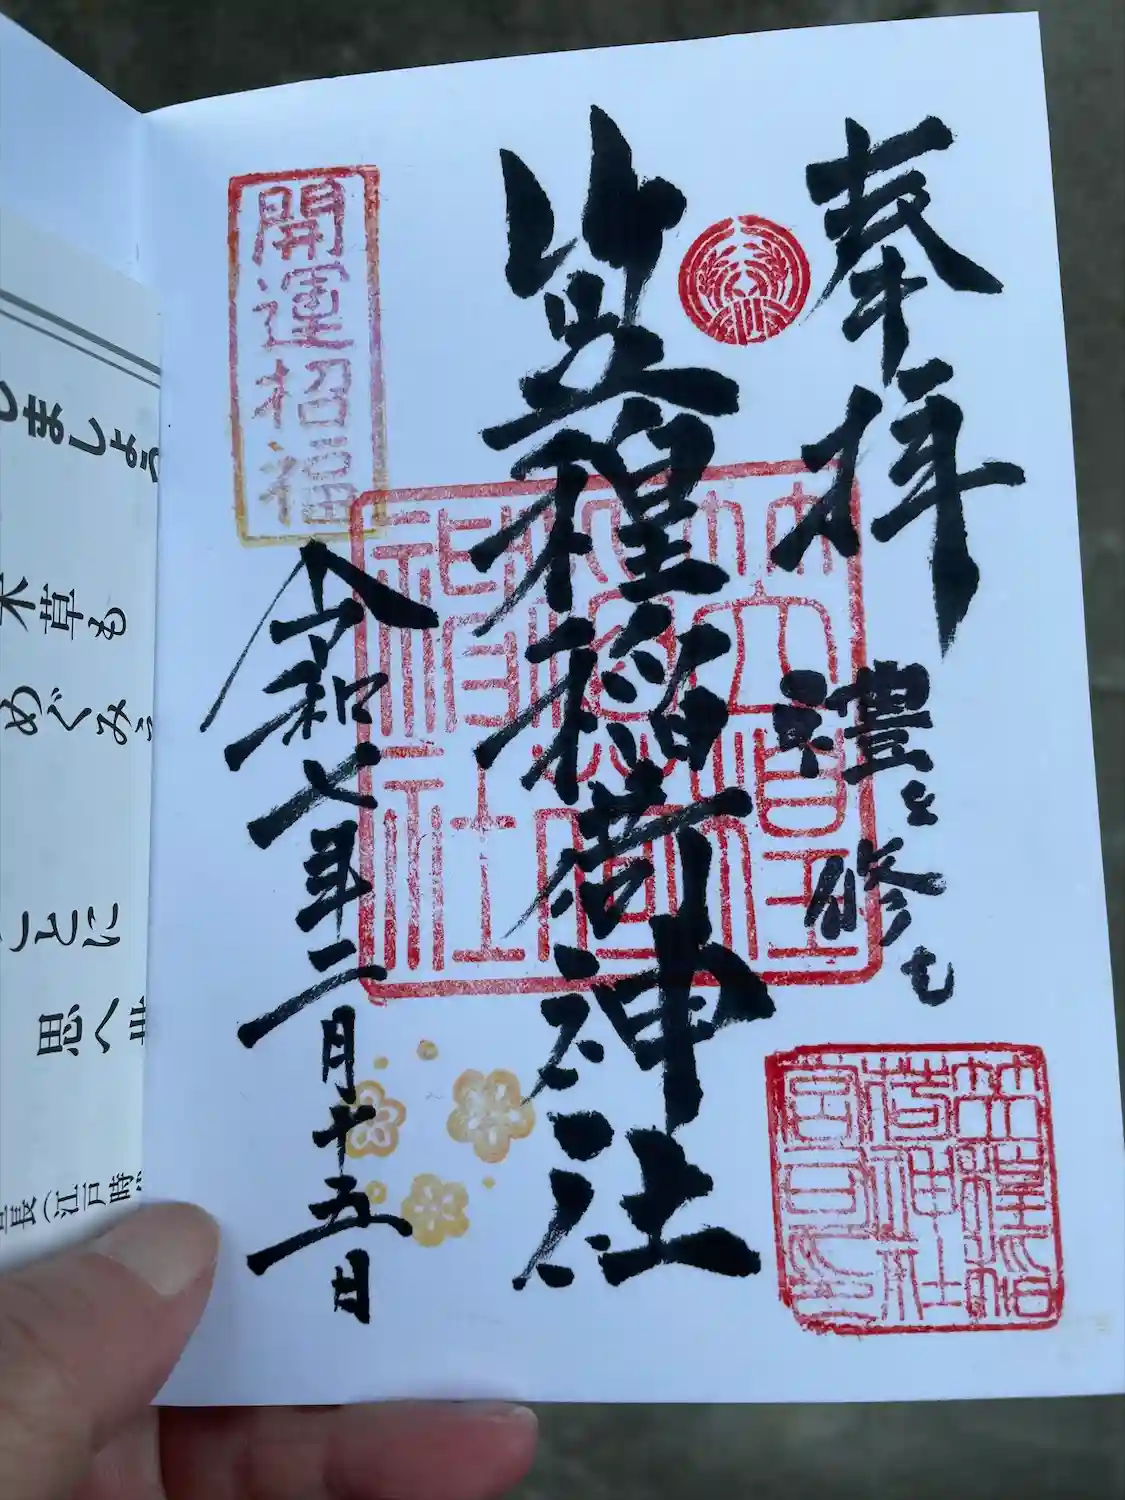 奉拝
禮を修む
笠䅣稲荷神社
令和七年二月十五日
開運招福
笠䅣
稲荷
神社
笠䅣稲
荷神社
宮司之印
しましょう
草も
めぐみ
ことに
思へ
長(江戸時